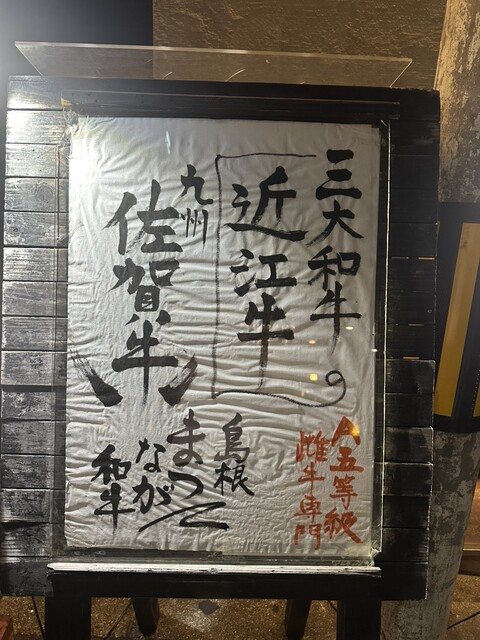 三大和牛
近江牛
九州
佐賀牛
A五等級
雌牛専門
島根
まつ
なが
和牛